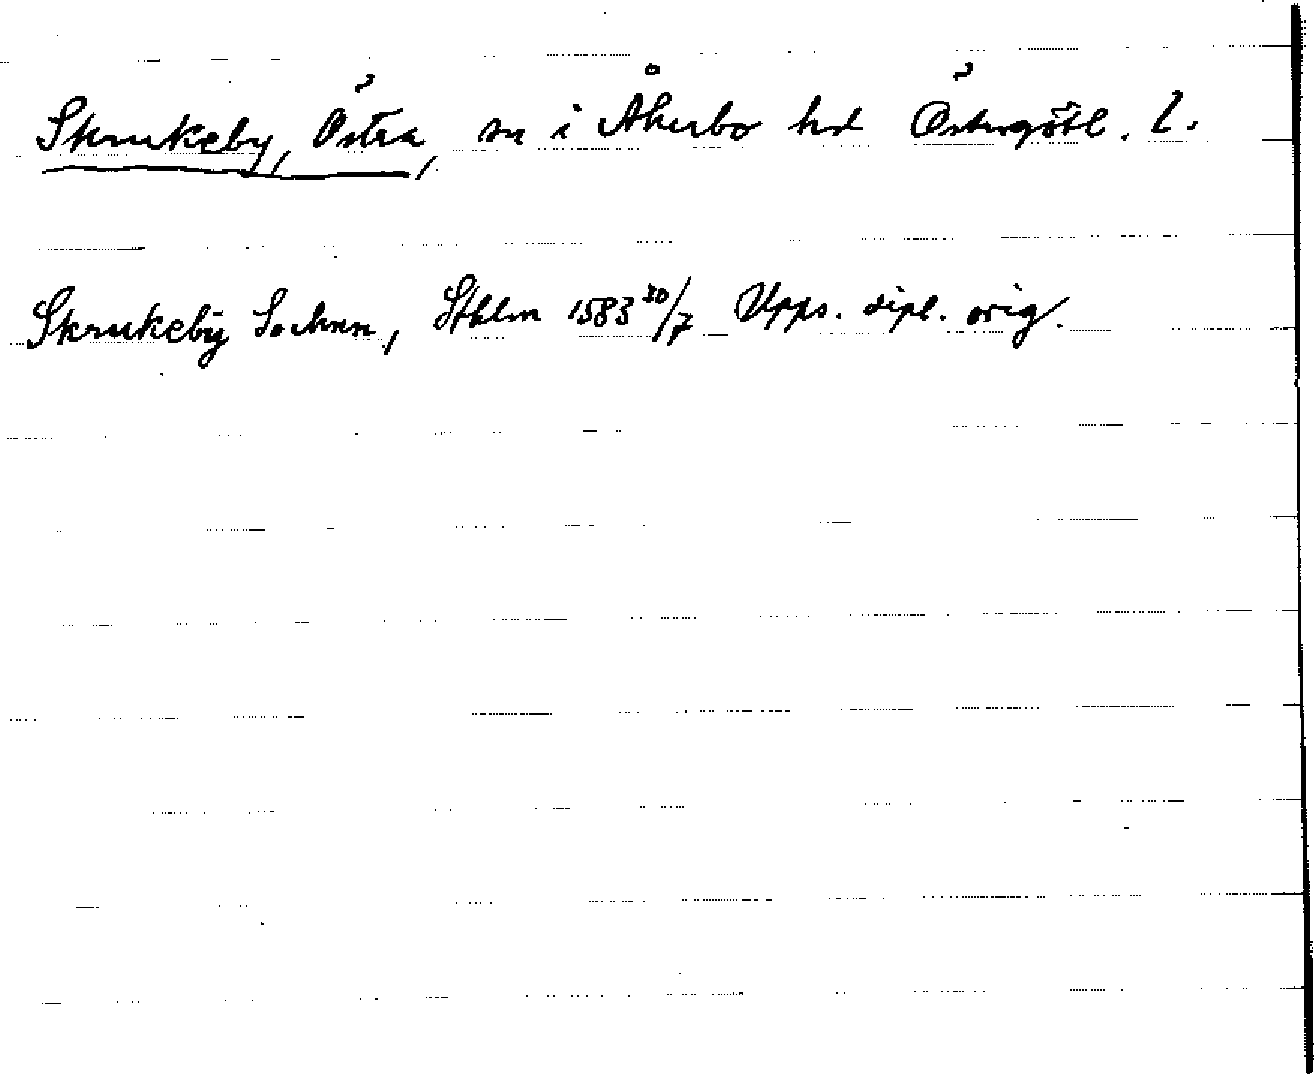 Skrukeby, Östra, sn i Åkerbo hd Östergötl. L.
Skrukebÿ Sochnn, Sthlm 1583 30/7 Upps. dipl. orig.